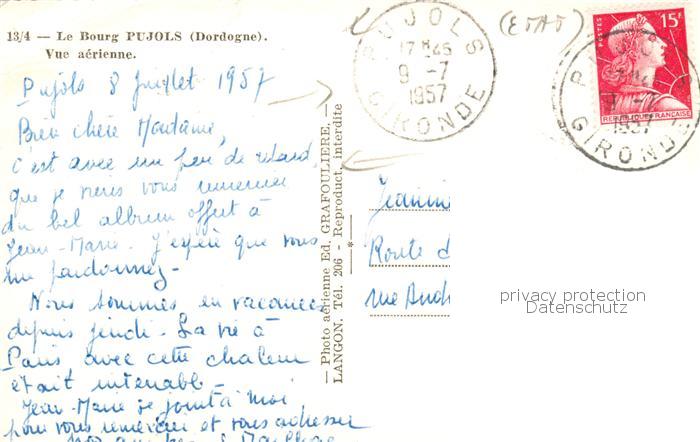 13/4 — Le Bourg PUJOLS (Dordogne).
Vue aérienne.
Pujols 8 Juillet 1957
Bien chère Madame,
C'est avec un peu de retard
que je viens vous remercier
du bel album offert à
Jean-Marie. J'espère que vous
me pardonnez-
Nous sommes en vacances
depuis jeudi. La vie à
Paris avec cette chaleur
était intenable-
Jean-Marie se joint à moi
pour vous remercier et vous adresser
— Photo aérienne Ed. GRAFOULIERE, —
LANGON, Tél. 206 - Reproduct. interdite
—*—
PUJOLS
17H45
9 -7
1957
GIRONDE
15F
POSTES
REPUBLIQUE FRANÇAISE
PUJOLS
1957
GIRONDE
Jeannine
Route d
rue And
privacy protection
Datenschutz